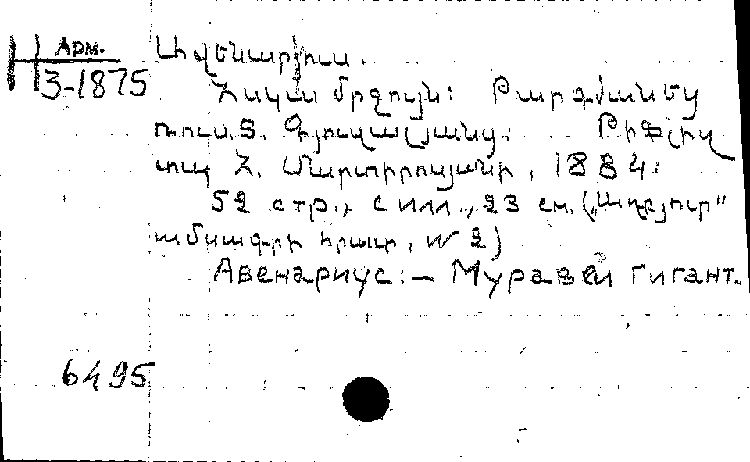 Арм.
3-1875
Ավենարիուս.
Հսկայ մրջույն: Թարգմանեց
ռուս. Տ. Գյուզալյանց. Թիֆլիզ
տպ Հ. Մարտիրոսյանի, 1884:
52 стр., с илл., 23 см. („Աղբյուր"
ամսագրի հրատ., № 2)
Авенариус. - Муравей гигант.
6495